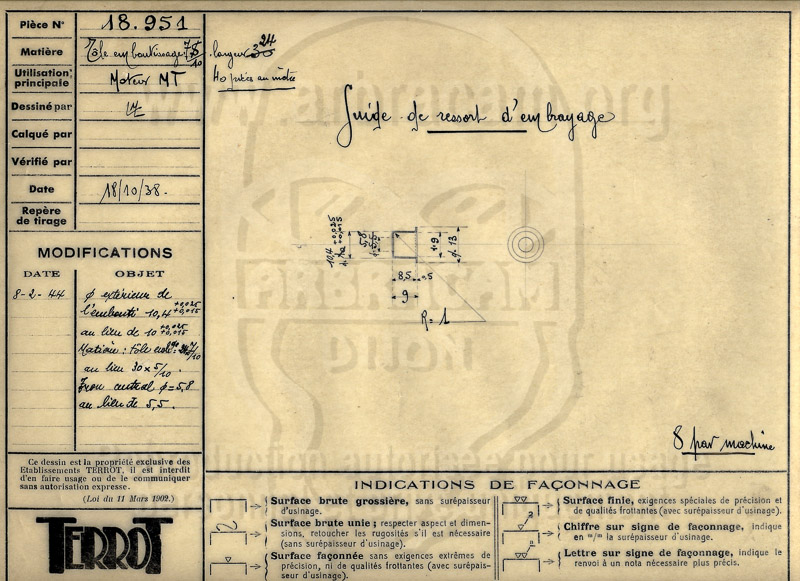 Pièce N° 18.951
Matière Tôle emboutissage 7/10 largeur 24
40 pièces au mètre
Utilisation principale Moteur MT
Dessiné par
Calqué par
Vérifié par
Date 18/10/38.
Repère de tirage
Guide de ressort d'embrayage
MODIFICATIONS
DATE OBJET
8-2-44 ϕ extérieur de
l'embouti 10,4 +0,025 +0,015
au lieu de 10 +0,025 +0,015
Matière: tôle
au lieu 30 x 5/10.
Trou central ϕ=5,8
au lieu de 5,5.
10,4 +0,025 +0,015
5,8
9
ϕ 13
8,5
9
R=1
8 par machine
Ce dessin est la propriété exclusive des
Etablissements TERROT, il est interdit
d'en faire usage ou de le communiquer
sans autorisation expresse.
(Loi du 11 Mars 1902.)
TERROT
INDICATIONS DE FAÇONNAGE
Surface brute grossière, sans surépaisseur
d'usinage.
Surface brute unie; respecter aspect et dimen-
sions, retoucher les rugosités s'il est nécessaire
(sans surépaisseur d'usinage).
Surface façonnée sans exigences extrêmes de
précision, ni de qualités frottantes (avec surépais-
seur d'usinage).
Surface finie, exigences spéciales de précision et
de qualités frottantes (avec surépaisseur d'usinage).
Chiffre sur signe de façonnage, indique
en "/m la surépaisseur d'usinage.
Lettre sur signe de façonnage, indique le
renvoi à un nota nécessaire plus précis.
www.arbracam.org
ARBRACAM
DIJON